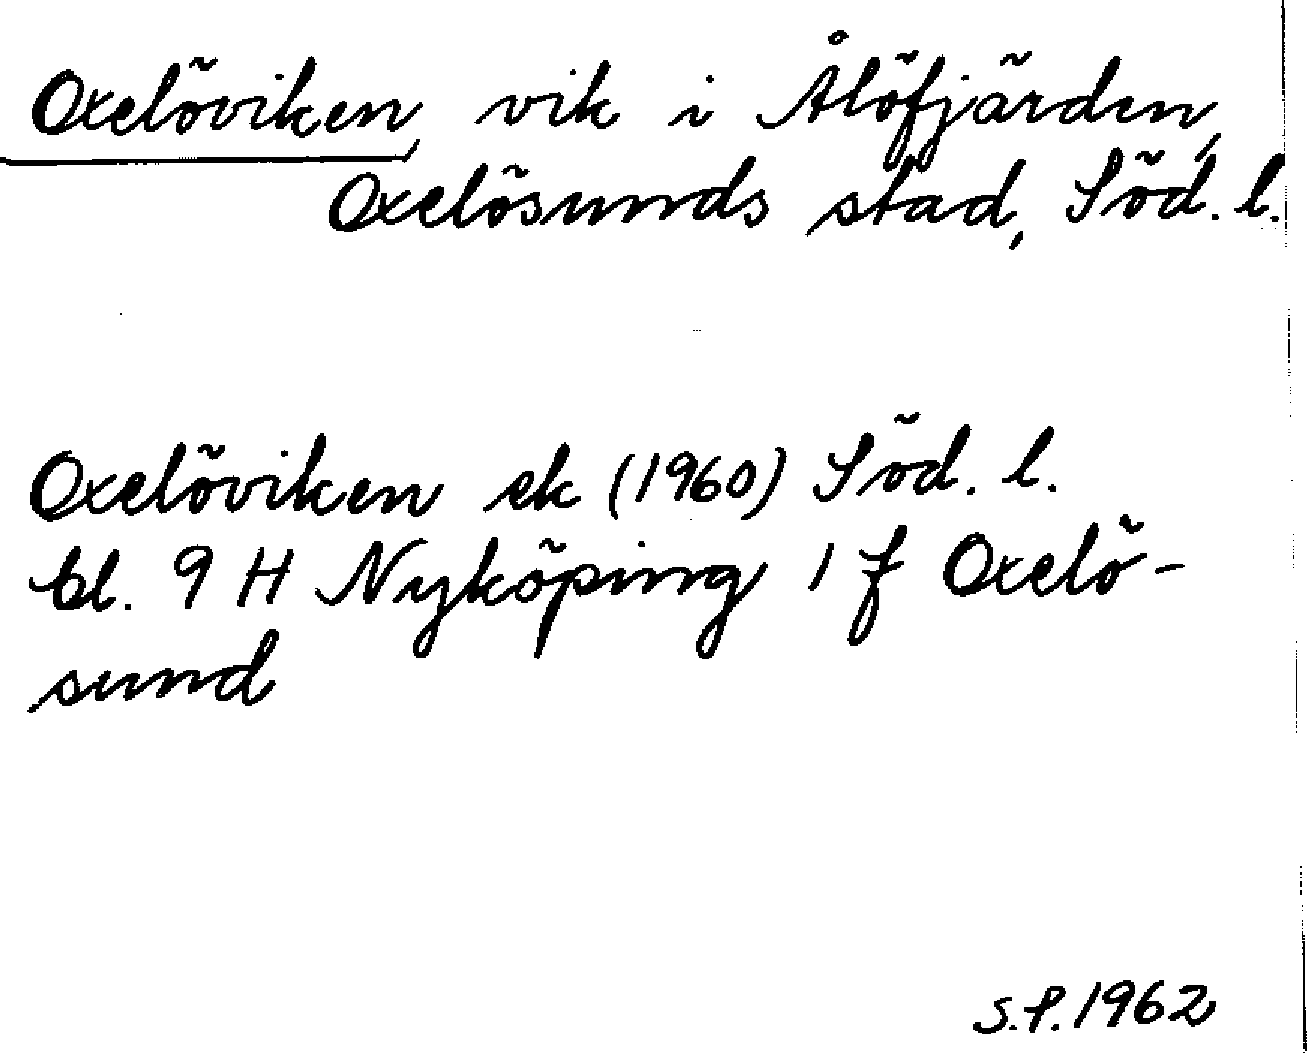 Oxelöviken, vik i Ålöfjärden,
Oxelösunds stad, Söd. l.
Oxelöviken ek (1960) Söd. l.
bl. 9 H Nyköping 1 f Oxelö-
sund
S.P. 1962